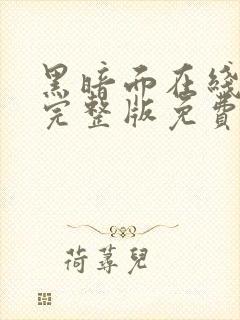 黑暗而在綫
完整版免費
荷蕁兒